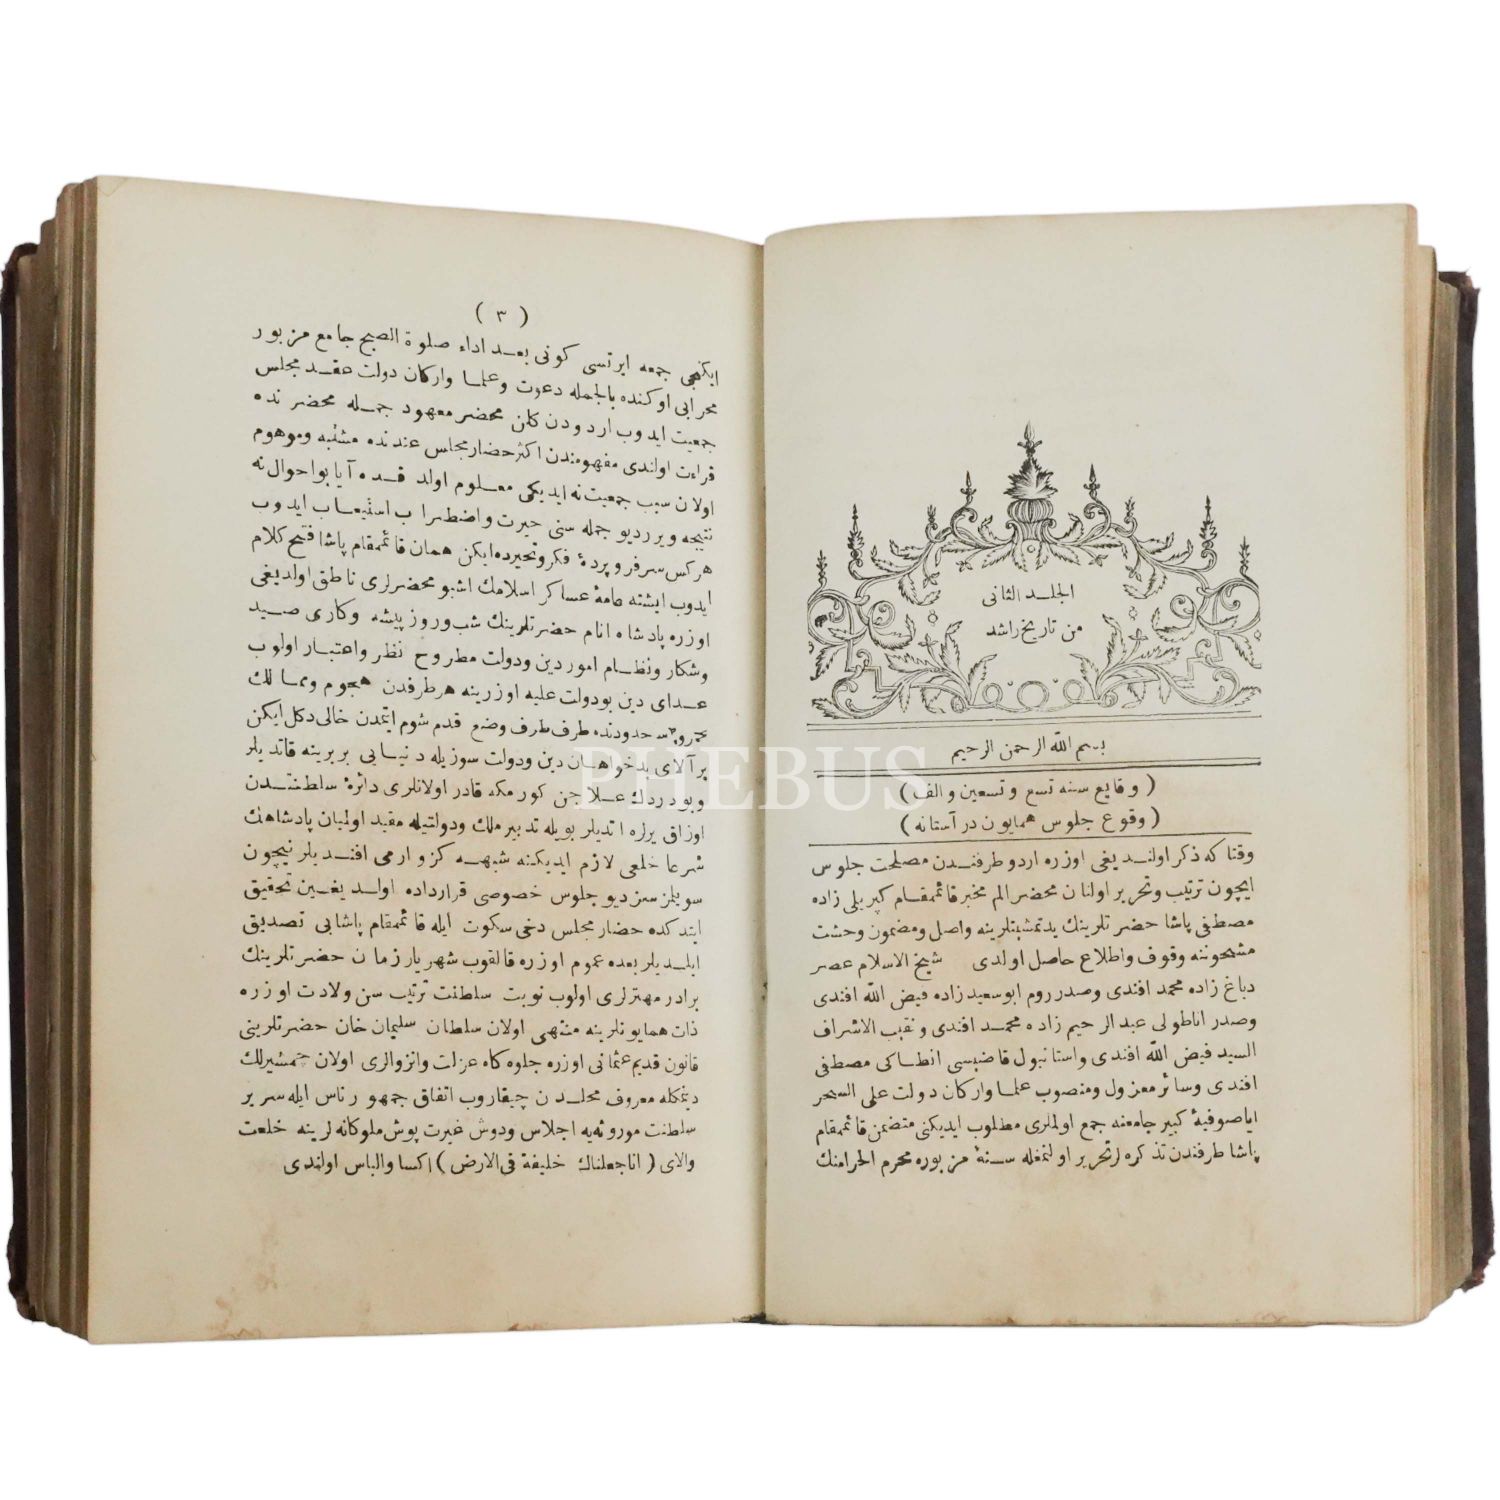 الجلد الثانی
من تاریخ راشد
بسم الله الرحمن الرحیم
( وقایع سنه تسع و تسعین و الف )
( وقوع جلوس همایون در آستانه )
وقتا که ذکر اولندیغی اوزره اردو طرفندن مصلحت جلوس
ایچون ترتیب و تحریر اولنان محضر الم مخبر قائممقام کپریلی زاده
مصطفی پاشا حضرتلرینك یدتمشیتلرینه واصل و مضمون وحشت
مشحوننه وقوف و اطلاع حاصل اولدی شیخ الاسلام عصر
دباغ زاده محمد افندی و صدر روم ابو سعید زاده فیض الله افندی
و صدر اناطولی عبد الرحیم زاده محمد افندی و نقیب الاشراف
السید فیض الله افندی و استانبول قاضیسی انطاکی مصطفی
افندی و سائر معزول و منصوب علما و ارکان دولت علی السحر
ایاصوفیۀ کبیر جامعنه جمع اولملری مطلوب ایدیکنی متضمن قائممقام
پاشا طرفندن تذکره لر تحریر اولنمغله سنۀ مزبوره محرم الحرامنك
( ٣ )
ایکنجی جمعه ایرتسی کونی بعد اداء صلوة الصبح جامع مزبور
محرابی اوکنده بالجمله دعوت و علما و ارکان دولت عقد مجلس
جمعیت ایدوب اردودن کلن محضر معهود جمله محضرنده
قراءت اولندی مفهومندن اکثر حضار مجلس عندنده مشتبه و موهوم
اولان سبب جمعیت نه ایدیکی معلوم اولدقده آیا بو احوال نه
نتیجه ویرر دیو جمله سنی حیرت و اضطراب استیعاب ایدوب
هرکس سر فرو بردۀ فکر و تحیرده ایکن همان قائممقام پاشا فتح کلام
ایدوب ایشته عامۀ عساکر اسلامك اشبو محضرلری ناطق اولدیغی
اوزره پادشاه انام حضرتلرینك شب و روز پیشه و کاری صید
و شکار و نظام امور دین و دولت مطروح نظر و اعتبار اولوب
عدای دین بو دولت علیه اوزرینه هر طرفدن هجوم و ممالك
محروسه حدودنده طرف طرف وضع قدم شوم ایتمدن خالی دکل ایکن
بر آلای بدخواهان دین و دولت سوزیله دنیایی بربرینه قاتدیلر
و بو دردك علاجن کورمکه قادر اولانلری دائرۀ سلطنتدن
اوزاق یرلره اتدیلر بویله تدبیر ملك و دولتیله مقید اولمیان پادشاهك
شرعا خلعی لازم ایدیکنه شبهه کز وارمی افندیلر نیچون
سویلمزسز دیو جلوس خصوصی قرارداده اولدیغین تحقیق
ایتدکده حضار مجلس دخی سکوت ایله قائممقام پاشایی تصدیق
ایلدیلر بعده عموم اوزره قالقوب شهریار زمان حضرتلرینك
برادر مهترلری اولوب نوبت سلطنت ترتیب سن ولادت اوزره
ذات همایونلرینه منتهی اولان سلطان سلیمان خان حضرتلرینی
قانون قدیم عثمانی اوزره جلوه کاه عزلت و انزوالری اولان چمشیرلك
دیمکله معروف محلدن چیقاروب اتفاق جمهور ناس ایله سریر
سلطنت موروثه یه اجلاس و دوش غیرت پوش ملوکانه لرینه خلعت
والای ( انا جعلناك خلیفة فی الارض ) اکسا و الباس اولندی
PHEBUS